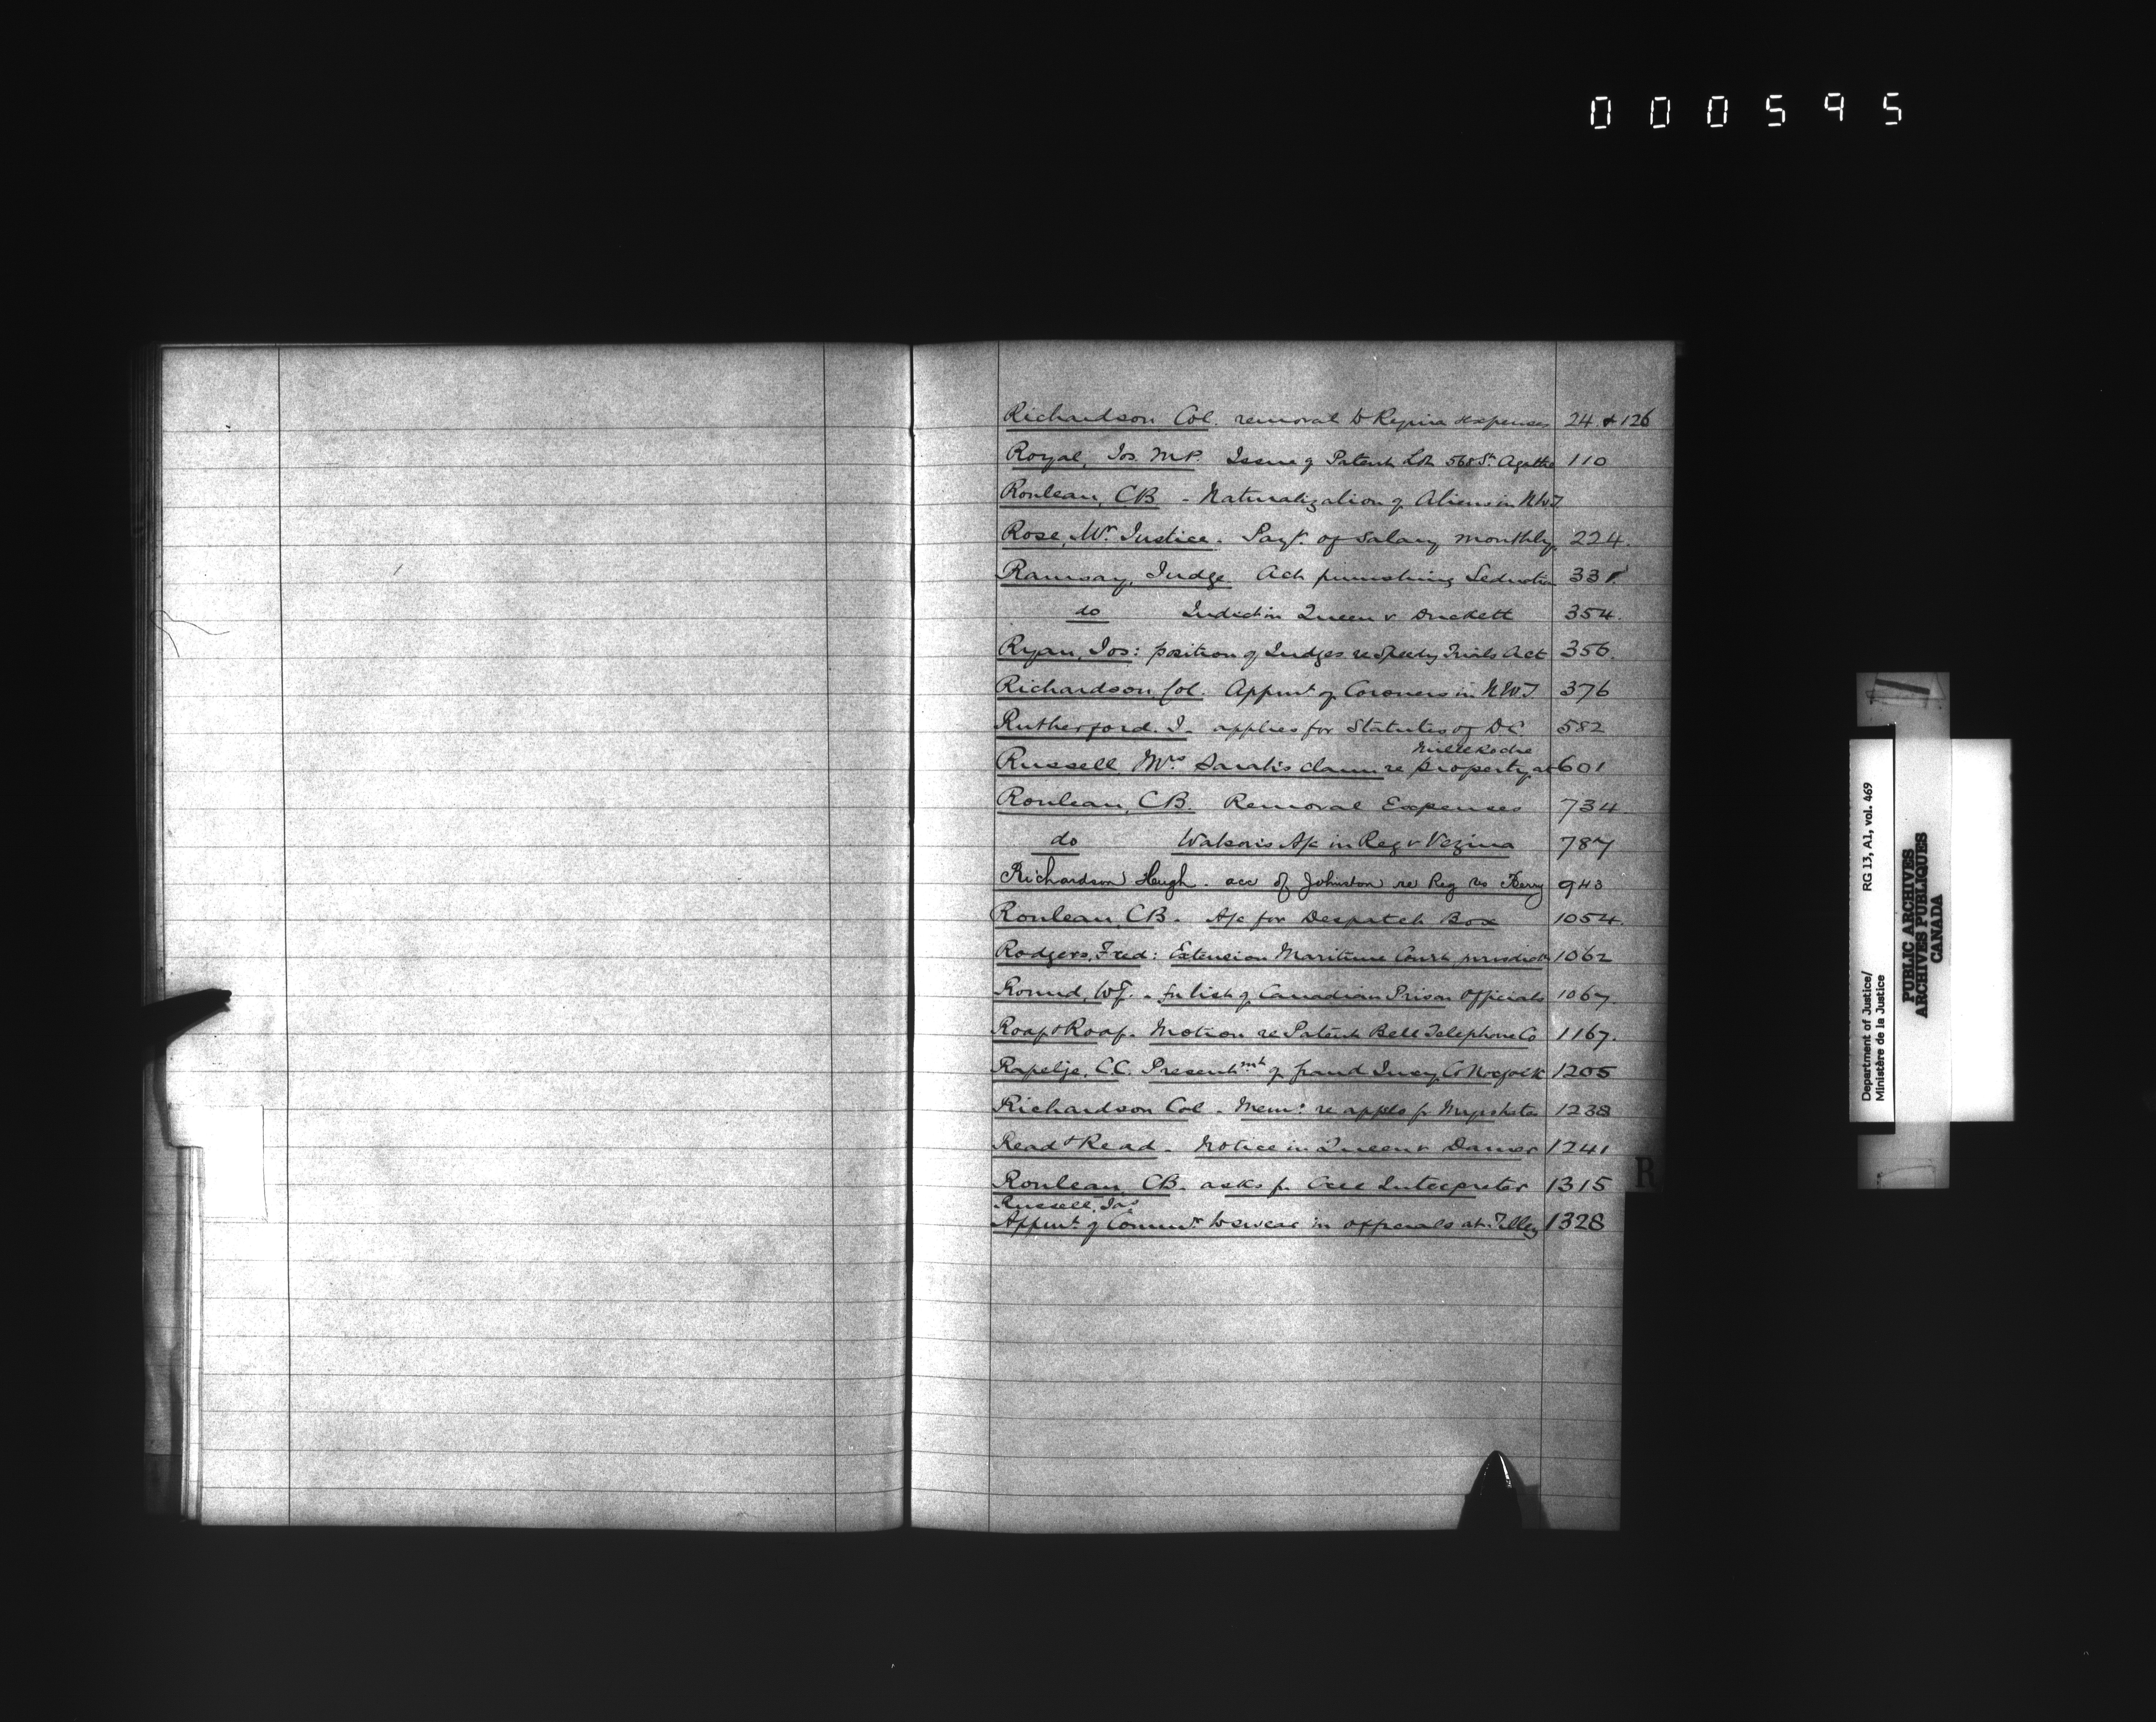 000595
Richardson Col. removal to Regina expenses 24 & 126
Royal, Jos. M.P. Issue of Patent Lot 568 St. Agathe 110
Rouleau, C.B. - Naturalization of Aliens in N.W.T
Rose, Mr. Justice. Payt. of salary monthly 224.
Ramsay, Judge. Act punishing Seduction 331
do Indict in Queen v 354.
Ryan, Jos: position of Judges re Speedy Trials Act 356.
Richardson Col. Appmt of Coroners in N.W.T 376
Rutherford. J. applies for Statutes of D.C 582
Mille Roche
Russell, Mrs Sarah's claim re property at 601
Rouleau, C.B. Removal Expenses 734
do Watson's A/c in Reg v Vezina 787
Richardson Hugh. acc of Johnston re Reg vs Berry 943
Rouleau, C.B. A/c for Despatch Box 1054.
Rodgers, Fred: Extension Maritime Court jurisdictn 1062
Round, W.F. - for list of Canadian Prison Officials 1067.
Roaf & Roaf. Motion re Patent Bell Telephone Co 1167.
Rapelje, C.C. Presentmt of Grand Jury, Co Norfolk 1205
Richardson Col. Memo: re appls for 1238
Read & Read. Notice in Queen v 1241
Rouleau, C.B. asks for Cree Interpreter 1315
Russell, Jas
Appmt of Commr to swear in officials at Tilley 1328
R
Department of Justice/ RG 13, A1, vol. 469
Ministère de la Justice
PUBLIC ARCHIVES
ARCHIVES PUBLIQUES
CANADA